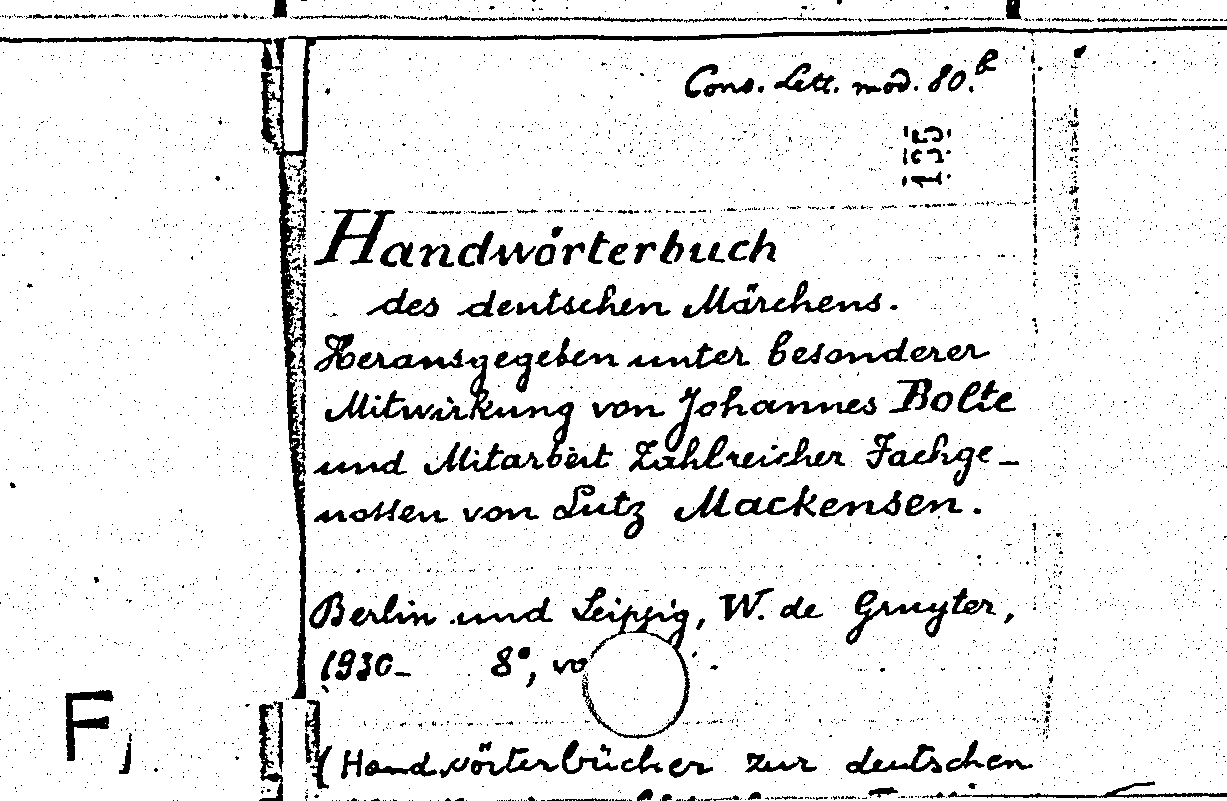 Cons. Lett. mod. 80.b
135
Handwörterbuch
des deutschen Märchens.
Herausgegeben unter besonderer
Mitwirkung von Johannes Bolte
und Mitarbeit Zahlreicher Fachge-
nossen von Lutz Mackensen.
Berlin und Leipzig, W. de Gruyter,
1930- 8°, vo
F
(Handwörterbücher zur deutschen